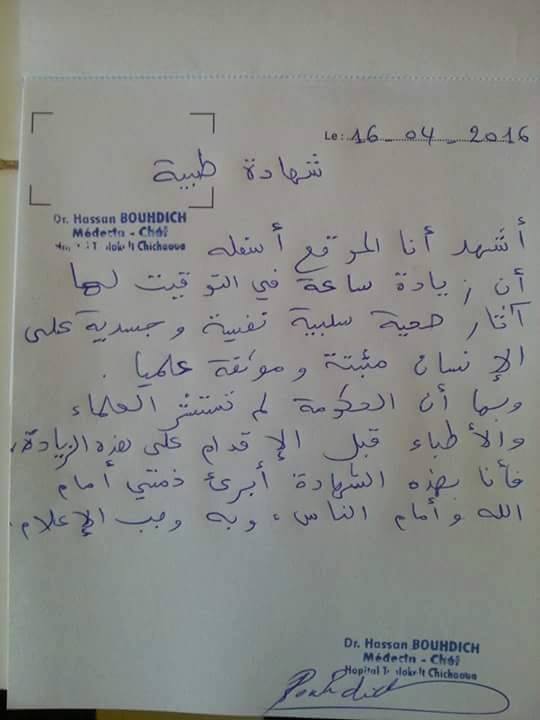 Le: 16-04-2016
شهادة طبية
Dr. Hassan BOUHDICH
Médecin - Chef
Chichaoua
أشهد أنا الموقع أسفله
أن زيادة ساعة في التوقيت لها
آثار صحية سلبية نفسية وجسدية على
الإنسان مثبتة وموثقة علميا.
وبما أن الحكومة لم تستشر العلماء
والأطباء قبل الإقدام على هذه الزيادة،
فأنا بهذه الشهادة أبرئ ذمتي أمام
الله وأمام الناس، وبه وجب الإعلام.
Dr. Hassan BOUHDICH
Médecin - Chef
Hopital Chichaoua
Bouhdich